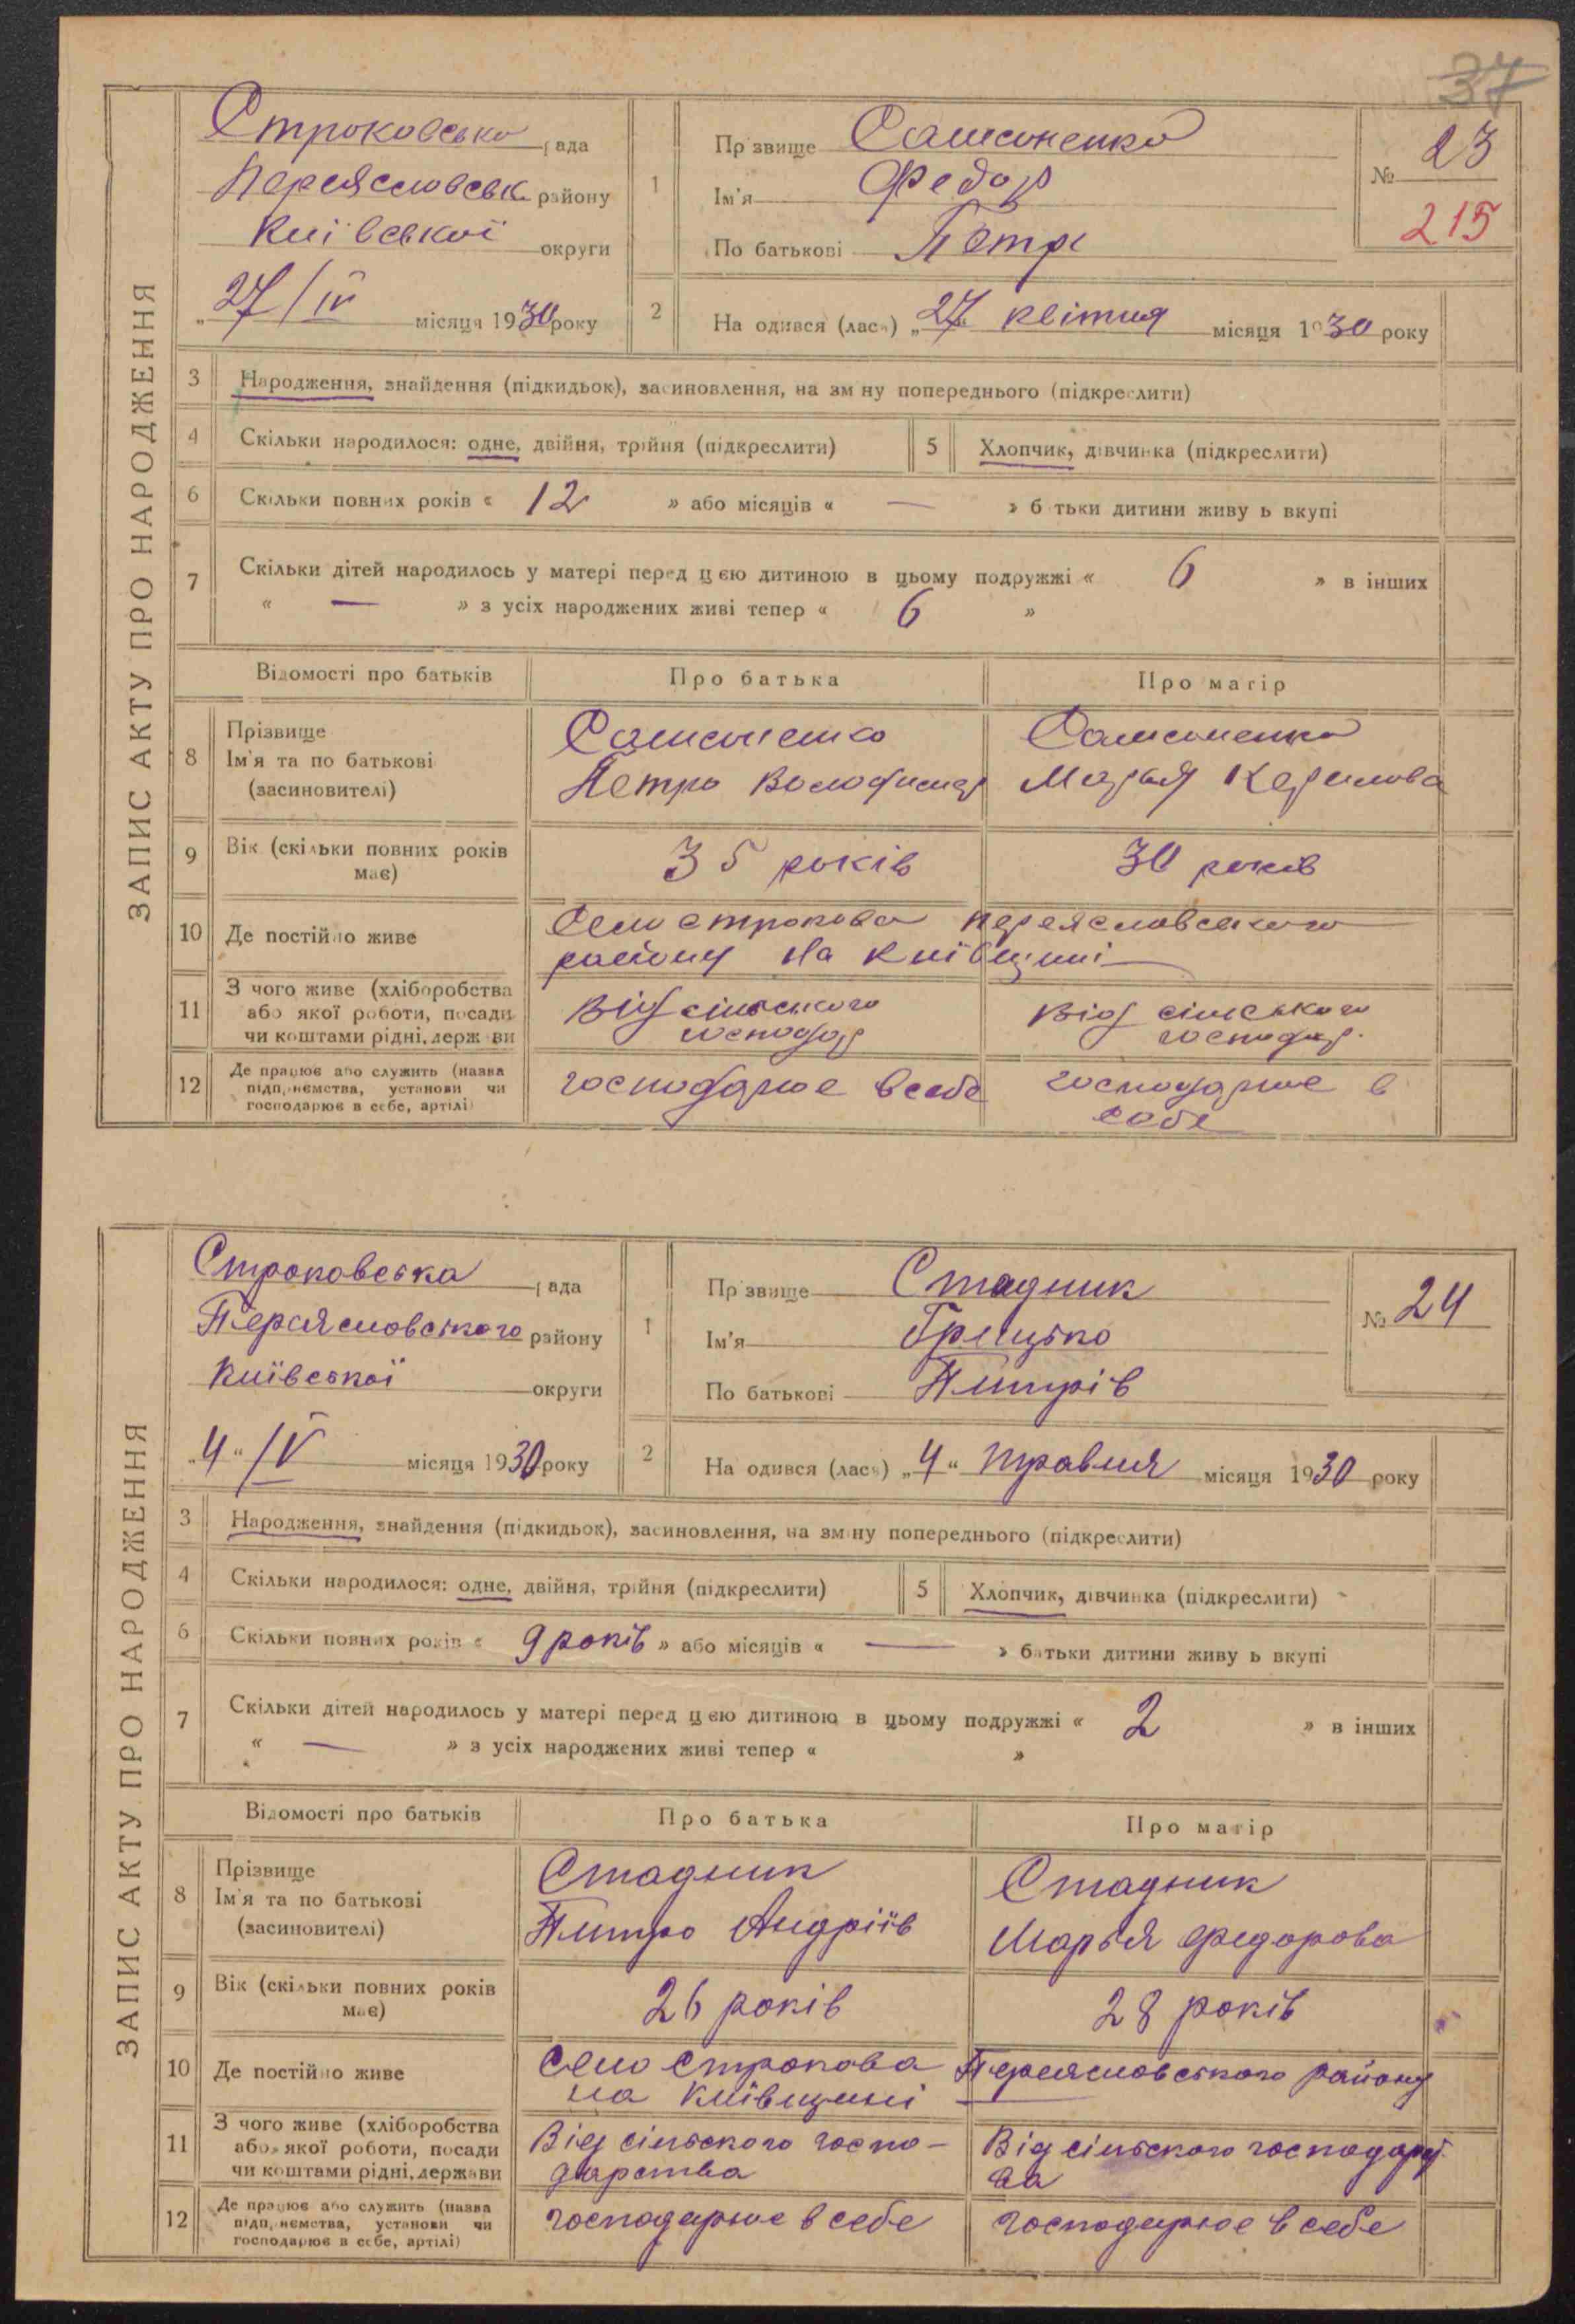 37
ЗАПИС АКТУ ПРО НАРОДЖЕННЯ
Строковсько рада
Переясловськ району
Київської округи
„27/IV місяця 1930 року
1 Прізвище Самсоненко
Ім'я Федор
По батькові Петр
№ 23
215
2 Народився (лась) „27" квітня місяця 1930 року
3 Народження, знайдення (підкидьок), засиновлення, на зміну попереднього (підкреслити)
4 Скільки народилося: одне, двійня, трійня (підкреслити) 5 Хлопчик, дівчинка (підкреслити)
6 Скільки повних років « 12 » або місяців « — » батьки дитини живуть вкупі
7 Скільки дітей народилось у матері перед цією дитиною в цьому подружжі « 6 » в інших
« — » з усіх народжених живі тепер « 6 »
Відомості про батьків Про батька Про матір
8 Прізвище
Ім'я та по батькові
(засиновителі)
Самсоненко
Петро Володимир
Самсоненко
Марья Керилова
9 Вік (скільки повних років
має)
35 років
30 років
10 Де постійно живе
Село строкова переясловського
району на Київщині
11 З чого живе (хліборобства
або якої роботи, посади
чи коштами рідні, держави
Від сільського
господар
Від сільського
господар.
12 Де працює або служить (назва
підприємства, установи чи
господарює в себе, артілі)
господарює в себе
господарює в
себе
ЗАПИС АКТУ ПРО НАРОДЖЕННЯ
Строковська рада
Переясловського району
Київської округи
„4" /V місяця 1930 року
1 Прізвище Стадник
Ім'я Грицько
По батькові Питрів
№ 24
2 Народився (лась) „4" травня місяця 1930 року
3 Народження, знайдення (підкидьок), засиновлення, на зміну попереднього (підкреслити)
4 Скільки народилося: одне, двійня, трійня (підкреслити) 5 Хлопчик, дівчинка (підкреслити)
6 Скільки повних років « 9 років » або місяців « — » батьки дитини живуть вкупі
7 Скільки дітей народилось у матері перед цією дитиною в цьому подружжі « 2 » в інших
« — » з усіх народжених живі тепер « »
Відомості про батьків Про батька Про матір
8 Прізвище
Ім'я та по батькові
(засиновителі)
Стадник
Питро Андріїв
Стадник
Марья Федорова
9 Вік (скільки повних років
має)
26 років
28 років
10 Де постійно живе
Село Строкова Переясловського району
на Київщині
11 З чого живе (хліборобства
або якої роботи, посади
чи коштами рідні, держави
Від сільського госпо-
дарства
Від сільського господарст
ва
12 Де працює або служить (назва
підприємства, установи чи
господарює в себе, артілі)
господарює в себе
господарює в себе